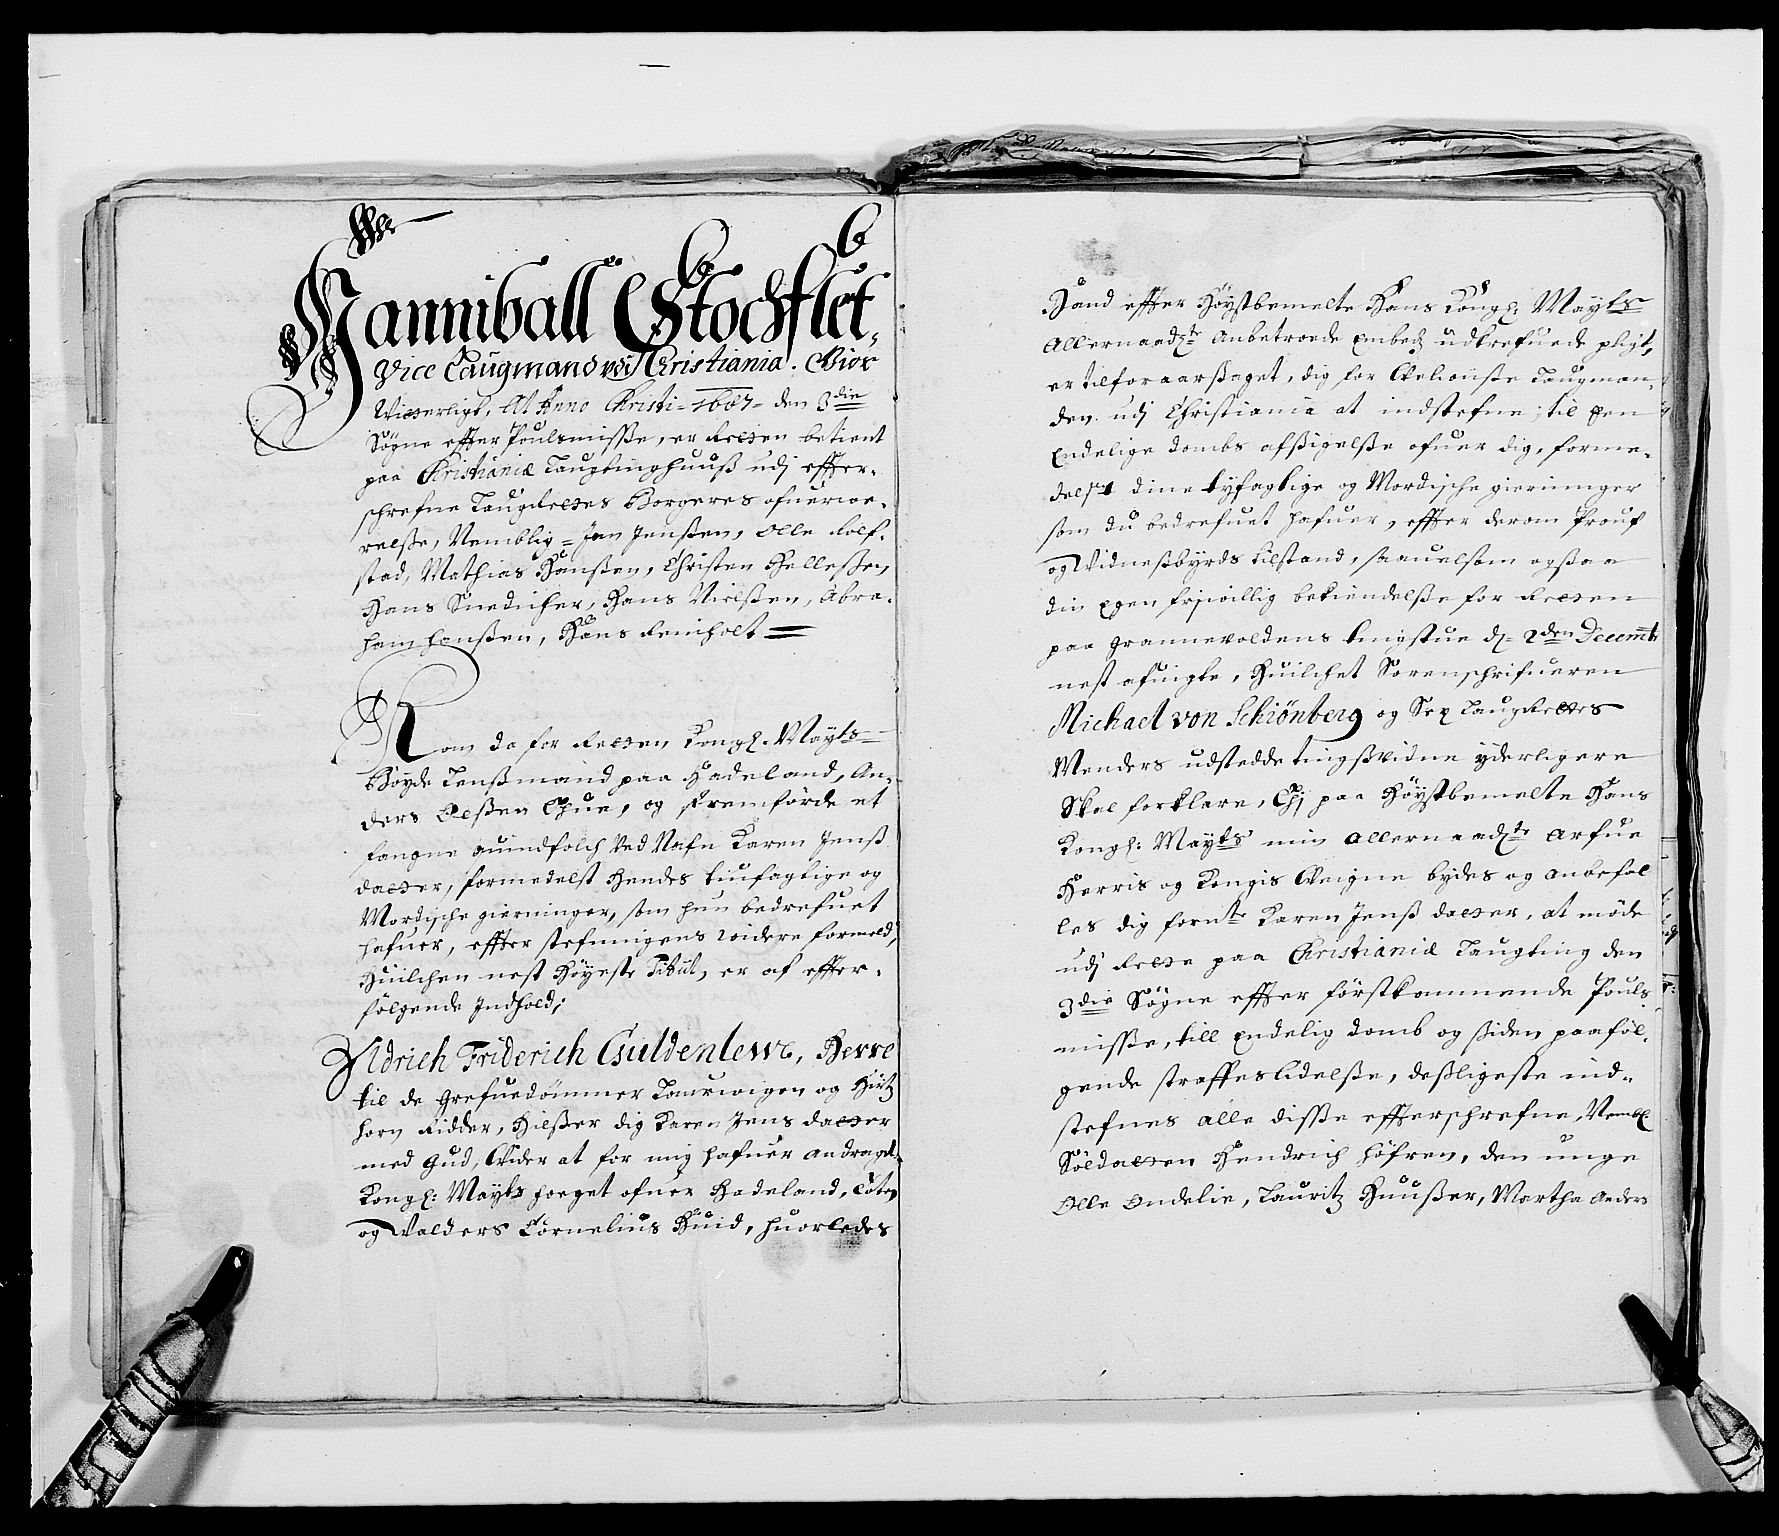 Hanniball Stochflet,
Vice Laugmand udj Christiania. Giör
Witterligt, At Anno Christi = 1687 = den 3die
Søgne effter Poulsmisse, er Retten betient
paa Christianiæ Laugtinghuuß udj effter-
schrefne Laugrettes Borgeres ofuerwe-
relße, Nemblig = Jan Jenßen, Olle Rolf-
stad, Mathias Hanßen, Christen Helleßen,
Hans Snedicher, Hans Nielßen, Abra-
ham Hanßen, Hans Reinholt =
Kom da for Retten Kongl. Mayts
Bøyde Lenßmand paa Hadeland, An-
ders Olßen Thue, og fremførde et
fangne quindfolch ved Nafn Karen Jenß
datter, formedelst hendes tiufagtige og
Mordische gierninger, som hun bedrefuet
hafuer, effter stefningens widere formeld,
Huilchen nest Høyeste Titul, er af effter-
følgende Indhold;
Uldrich Friderich Guldenlewe, Herre
til de Grefuedømmer Laurwigen og Hirtz
horn Ridder, Hilßer dig Karen Jens datter
med Gud, Wider at for mig hafuer andraget
Kongl: Mayts foeget ofuer Hadeland, Toten
og Walders Cornelius Huid, huorledes
hand effter Høystbemelte Hans Kongl: Mayts
Allernaadste Anbetroede Embeds udkrefuede pligt,
er tilforaarßaget, dig for Welwiiße Laugman-
den udj Christiania at indstefne; til een
Endelige dombs afßigelße ofuer dig, forme-
delst dine tyfagtige og Mordische gierninger
som du bedrefuet hafuer, effter derom Prouf
og Vidneßbyrds tilstand, saauelsom ogsaa
din Egen friwillig bekiendelße for Retten
paa Grannevoldens tingstue d= 2den Decembr
nest afuigte, Huilchet Sorenschrifueren
Michael von Schiønberg og Sex Laugrettes
Menders udstedde tingßvidne yderligere
Skal forklare, Thj paa Høystbemelte Hans
Kongl: Mayts min allernaadste Arfue
Herris og Kongis Weigne bydes og anbefal
les dig fornte Karen Jenß datter, at møde
udj Rette paa Christianiæ Laugting den
3die Søgne effter førstkommende Pouls
misse, till Endelig domb og ßiden paaføl-
gende straffeslidelße, deßligeste ind-
stefnes alle disse effterschrefne, Nembl
Søldatten Hendrich Høfren, den unge
Olle Ondelie, Lauritz Huußer, Martha Anders